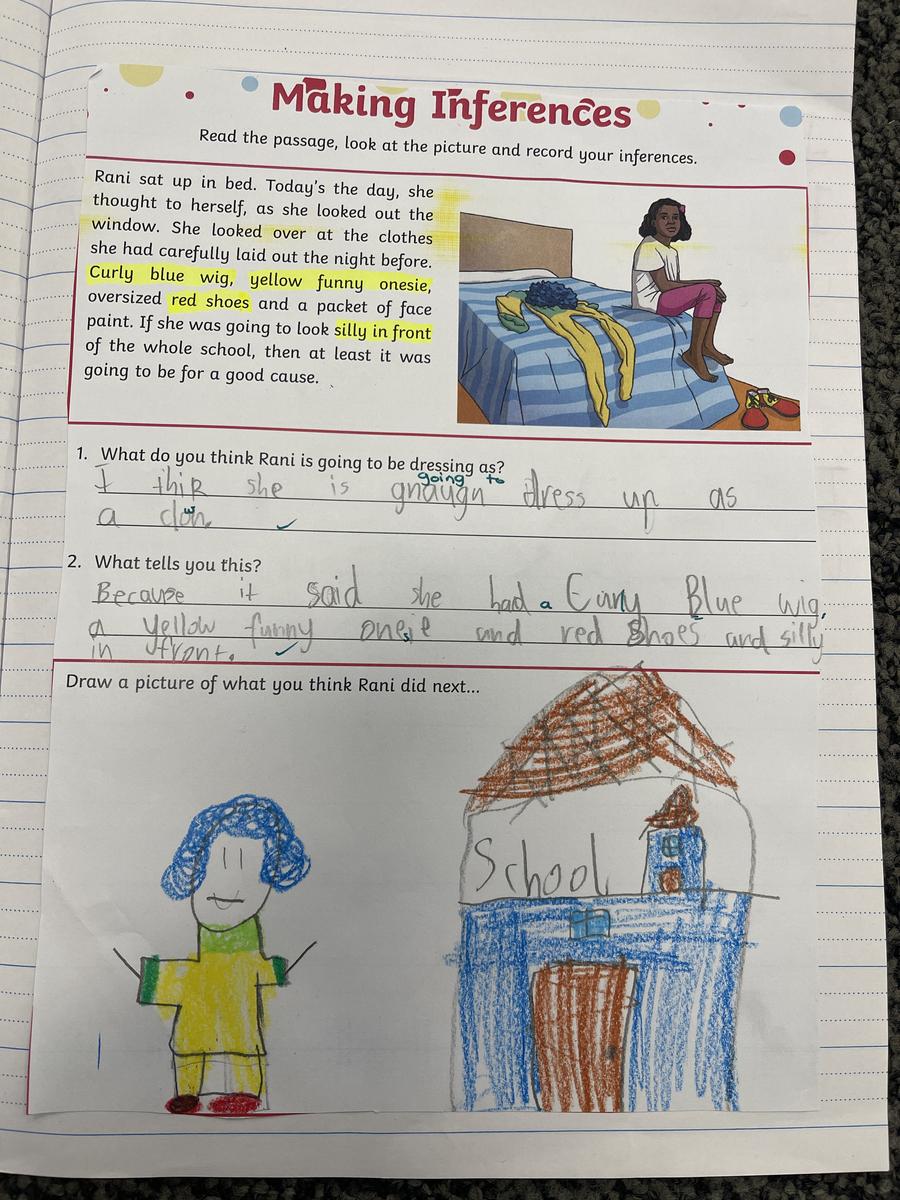 Making Inferences
Read the passage, look at the picture and record your inferences.
Rani sat up in bed. Today's the day, she
thought to herself, as she looked out the
window. She looked over at the clothes
she had carefully laid out the night before.
Curly blue wig, yellow funny onesie,
oversized red shoes and a packet of face
paint. If she was going to look silly in front
of the whole school, then at least it was
going to be for a good cause.
1. What do you think Rani is going to be dressing as?
going to
I thik she is gnaugn dress up as
a clown
2. What tells you this?
Because it said she had a Curly Blue wig,
a yellow funny onesie and red Shoes and silly
in front.
Draw a picture of what you think Rani did next...
School